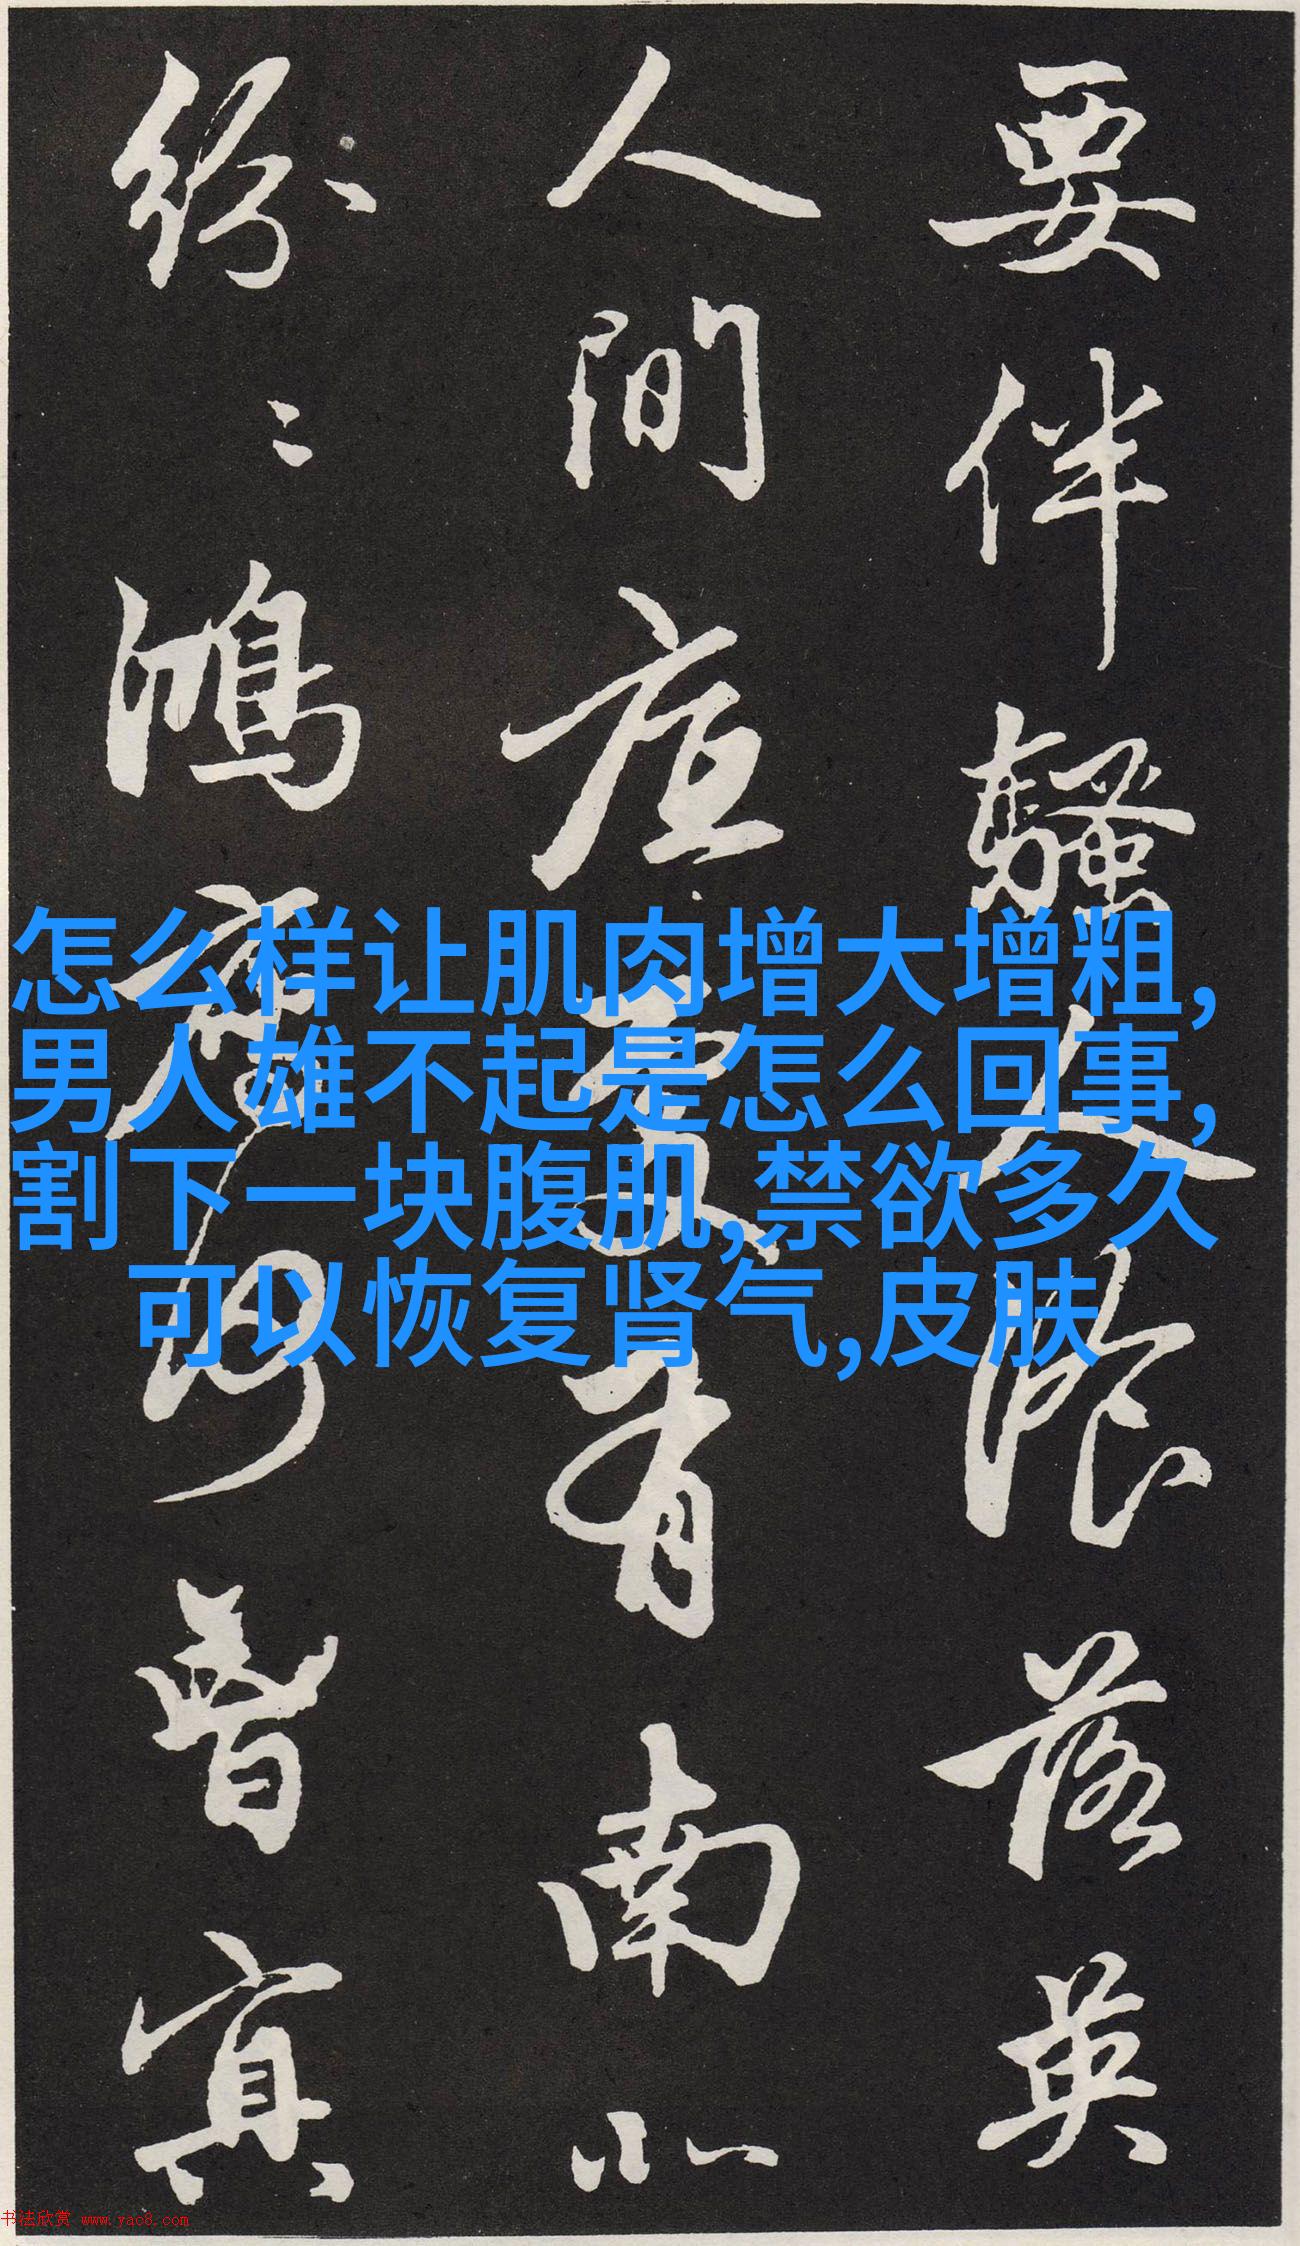 要伴騷人湌落英
人間底處有南北
紛〻鴻鴈何曾冥
怎么样让肌肉增大增粗,
男人雄不起是怎么回事,
割下一块腹肌,禁欲多久
可以恢复肾气,皮肤
书法欣赏 www.yac8.com